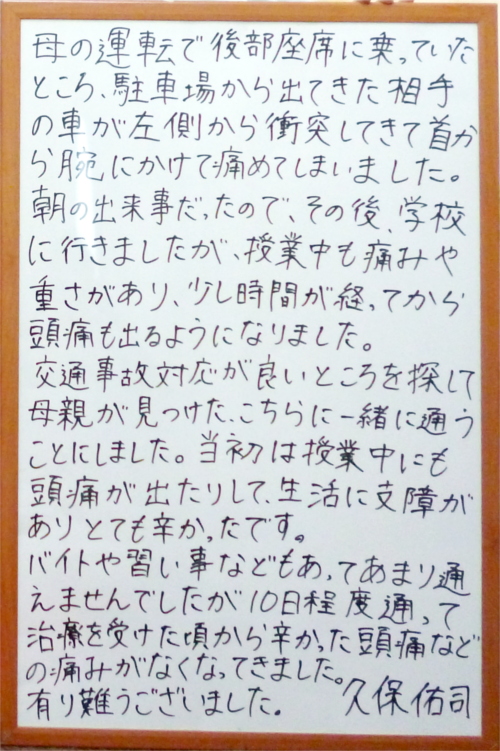 母の運転で後部座席に乗っていた
ところ、駐車場から出てきた相手
の車が左側から衝突してきて首か
ら腕にかけて痛めてしまいました。
朝の出来事だったので、その後、学校
に行きましたが、授業中も痛みや
重さがあり、少し時間が経ってから
頭痛も出るようになりました。
交通事故対応が良いところを探して
母親が見つけた、こちらに一緒に通う
ことにしました。当初は授業中にも
頭痛が出たりして、生活に支障が
ありとても辛かったです。
バイトや習い事などもあってあまり通
えませんでしたが10日程度通って
治療を受けた頃から辛かった頭痛など
の痛みがなくなってきました。
有り難うございました。 久保佑司